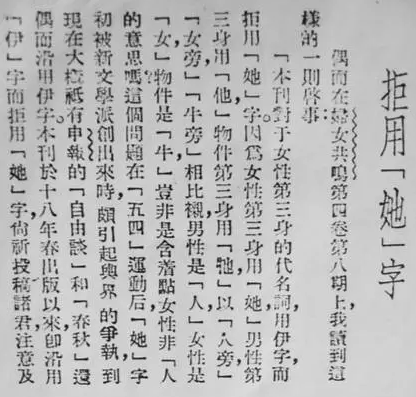 拒用「她」字
偶而在婦女共鳴第四卷第八期上，我讀到這
樣的一則啓事：
「本刊對于女性第三身的代名詞，用伊字，而
拒用「她」字，因爲女性第三身用「她」男性第
三身用「他」物件第三身用「牠」以「人旁」
「女旁」「牛旁」相比襯，男性是「人」女性是
「女」物件是「牛」豈非是含着點女性非「人
的意思嗎？這個問題在「五四」運動后，「她」字
初被新文學派創出來時，頗引起輿界的爭執，到
現在大槪祗有申報的「自由談」和「春秋」還
偶而沿用伊字，本刊於十八年春出版以來，卽沿用
「伊」字而拒用「她」字，尙祈投稿諸君注意及